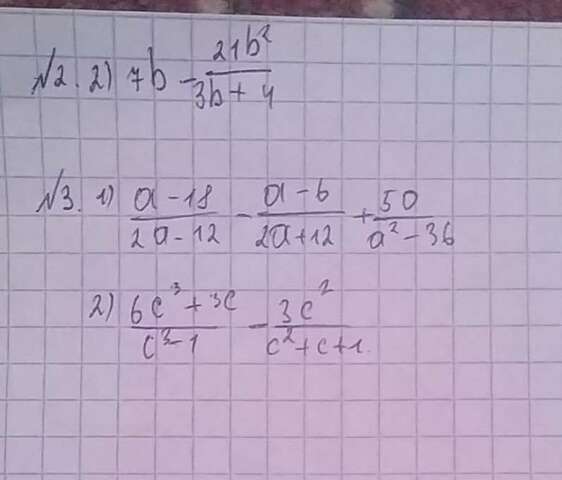 №2. 2) 7b - 21b²/(3b + 4)
№3. 1) (a - 18)/(2a - 12) - (a - 6)/(2a + 12) + 50/(a² - 36)
2) (6c³ + 3c)/(c³ - 1) - 3c²/(c² + c + 1.)